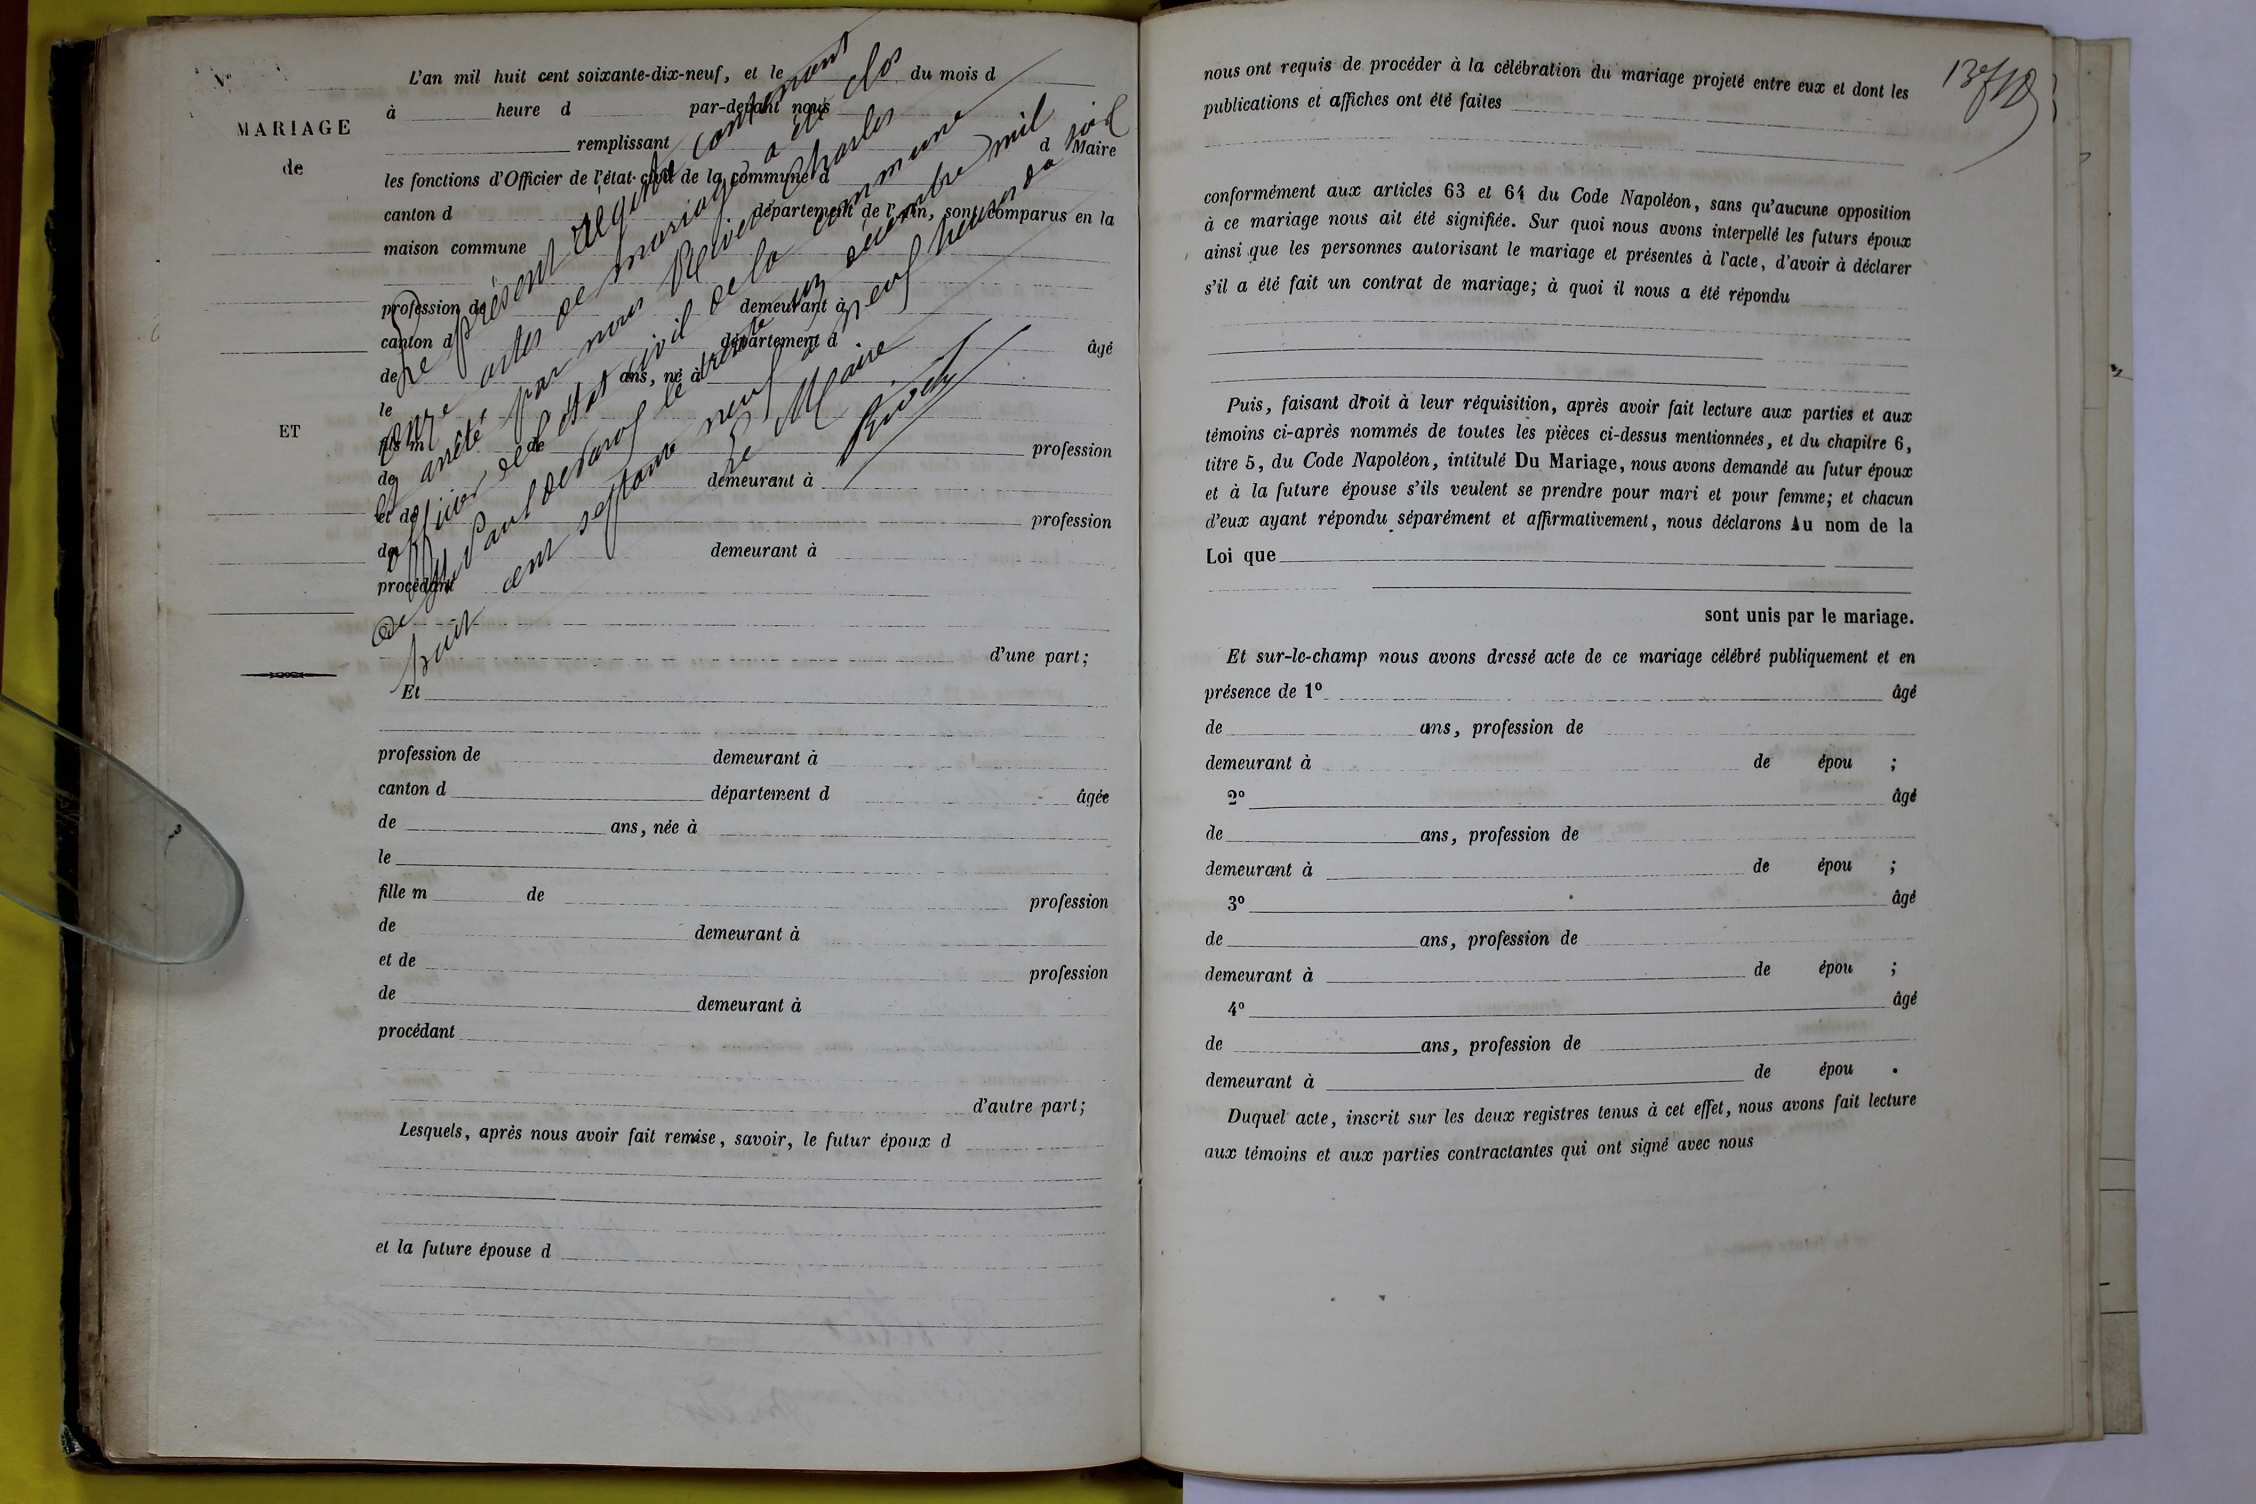 N°
MARIAGE
de
ET
L'an mil huit cent soixante-dix-neuf, et le du mois d
à heure d par-devant nous
remplissant d Maire
les fonctions d'Officier de l'état-civil de la commune d
canton d département de l'Ain, sont comparus en la
maison commune
profession de demeurant à
canton d département d âgé
de ans, né à
le
fils m de profession
de demeurant à
et de profession
de demeurant à
procédant
d'une part;
Le présent registre contenant
onze actes de mariage a été clos
et arrêté par nous Rivet Charles
officier de l'état civil de la commune
de St Paul de Varax le trente un décembre mil
huit cent septante neuf à neuf heures du soir
Le Maire
Rivet
Et
profession de demeurant à
canton d département d âgée
de ans, née à
le
fille m de profession
de demeurant à
et de profession
de demeurant à
procédant
d'autre part;
Lesquels, après nous avoir fait remise, savoir, le futur époux d
et la future épouse d
nous ont requis de procéder à la célébration du mariage projeté entre eux et dont les
publications et affiches ont été faites
conformément aux articles 63 et 64 du Code Napoléon, sans qu'aucune opposition
à ce mariage nous ait été signifiée. Sur quoi nous avons interpellé les futurs époux
ainsi que les personnes autorisant le mariage et présentes à l'acte, d'avoir à déclarer
s'il a été fait un contrat de mariage; à quoi il nous a été répondu
Puis, faisant droit à leur réquisition, après avoir fait lecture aux parties et aux
témoins ci-après nommés de toutes les pièces ci-dessus mentionnées, et du chapitre 6,
titre 5, du Code Napoléon, intitulé Du Mariage, nous avons demandé au futur époux
et à la future épouse s'ils veulent se prendre pour mari et pour femme; et chacun
d'eux ayant répondu séparément et affirmativement, nous déclarons Au nom de la
Loi que
sont unis par le mariage.
Et sur-le-champ nous avons dressé acte de ce mariage célébré publiquement et en
présence de 1° âgé
de ans, profession de
demeurant à de épou ;
2° âgé
de ans, profession de
demeurant à de épou ;
3° âgé
de ans, profession de
demeurant à de épou ;
4° âgé
de ans, profession de
demeurant à de épou .
Duquel acte, inscrit sur les deux registres tenus à cet effet, nous avons fait lecture
aux témoins et aux parties contractantes qui ont signé avec nous